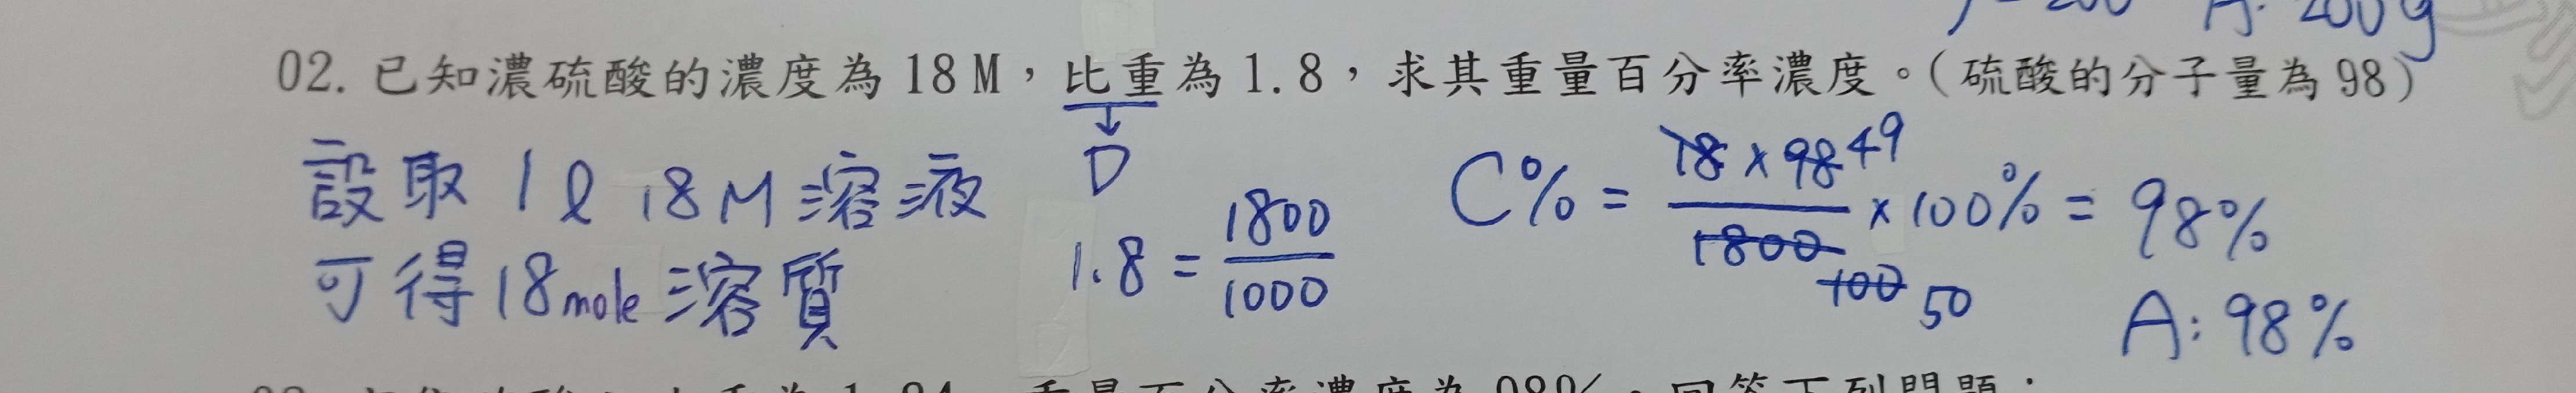 200g
02. 已知濃硫酸的濃度為 18 M，比重為 1.8，求其重量百分率濃度。(硫酸的分子量為 98)
↓
D
設取 1 l 18 M 溶液
可得 18 mole 溶質
1.8 = 1800 / 1000
C% = 18 × 98 49 / 1800 100 50 × 100% = 98%
A: 98%